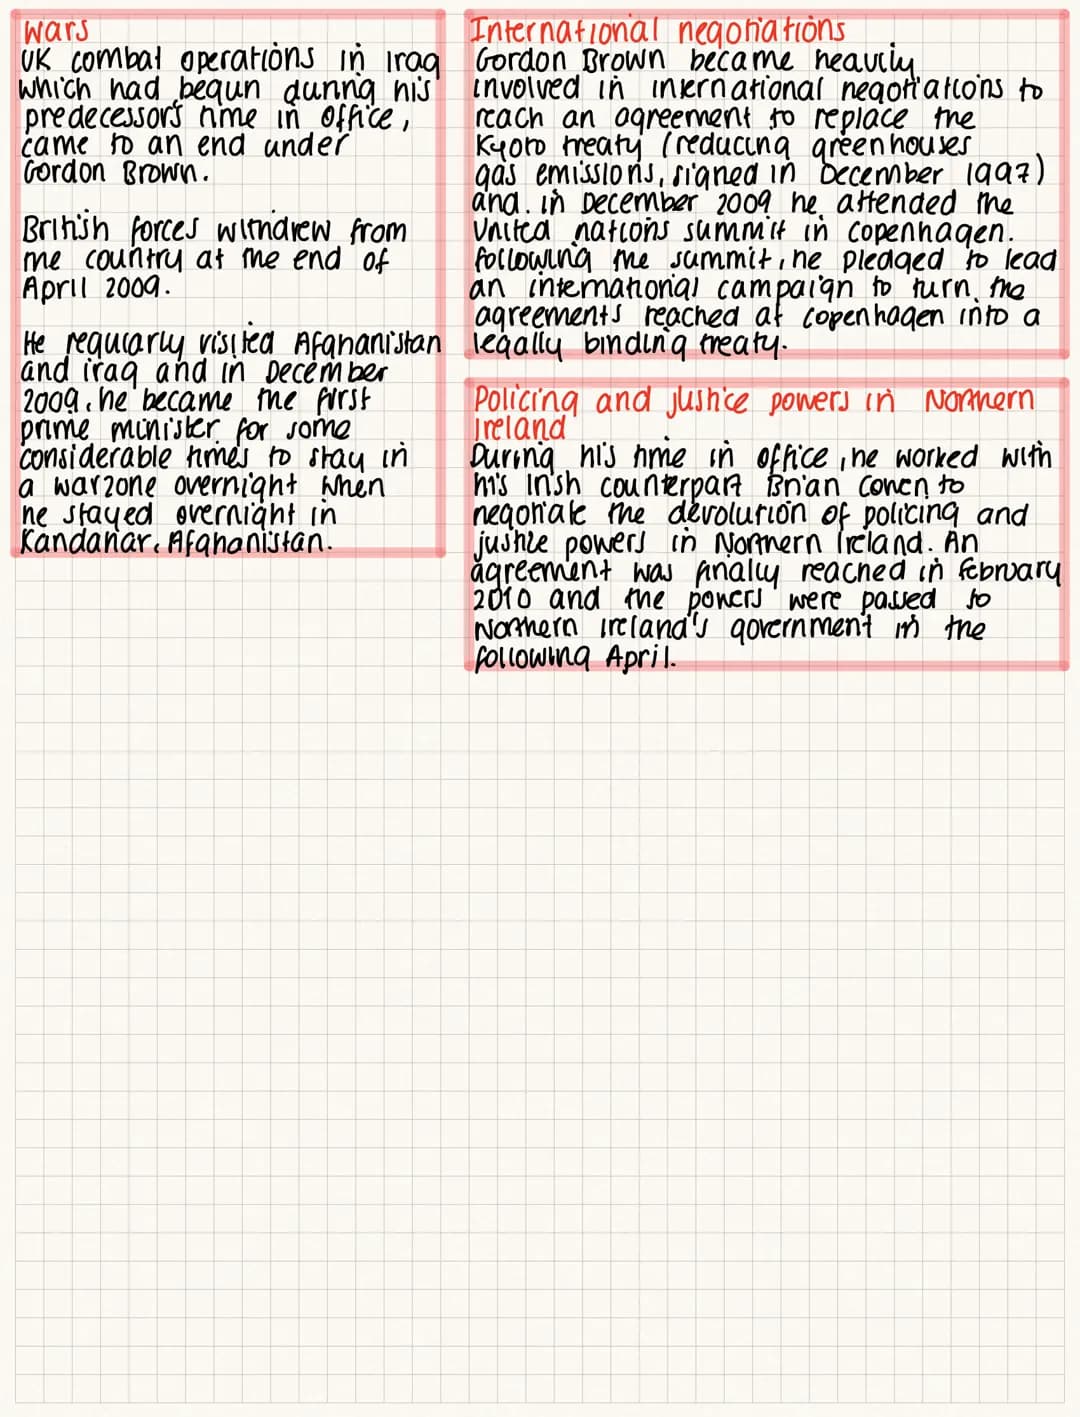 Wars
UK combat operations in Iraq
which had begun during his
predecessor's time in office,
came to an end under
Gordon Brown.
British forces withdrew from
the country at the end of
April 2009.
He regularly visited Afghanistan
and iraq and in December
2009, he became the first
prime minister for some
considerable times to stay in
a warzone overnight when
he stayed overnight in
Kandahar, Afghanistan.
International negotiations
Gordon Brown became heavily
involved in international negotiations to
reach an agreement to replace the
Kyoto treaty (reducing greenhouses
gas emissions, signed in December 1997)
and. in December 2009 he attended the
United nations summit in Copenhagen.
following the summit, he pledged to lead
an international campaign to turn the
agreements reached at Copenhagen into a
legally binding treaty.
Policing and justice powers in Northern
Ireland
During his time in office, he worked with
his Irish counterpart Brian Cowen to
negotiate the devolution of policing and
justice powers in Northern Ireland. An
agreement was finally reached in february
2010 and the powers were passed to
Northern ireland's government in the
following April.